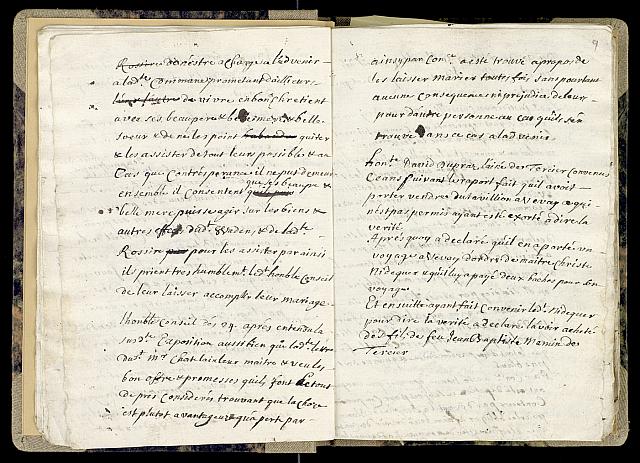 de nestre a Charge a l'advenir
a lad.te Commune promettant d'ailleurs
de vivre en bon Chretient
avec ses beaupere & belle mere & belle
soeur & de ne les point quiter
& les assister de tout leurs posibles & au
Cas que Contre sperance il ne put demeur
ensemble il Consentent que ses beaupe &
belle mere puisse agir sur les biens &
autres dud.t & de lad.te
Rossire pour les asister par ainsi
il prient tres humblem.t led.t honble Conseil
de leur laisser accomplir leur mariage.
L'honble Conseil des 24. aprés entendu la
susd.te Exposition aussi bien que lad.te lettre
dud.t M.r Chatelain leur maitre & veu les
bon offre & promesses qu'ils font le tout
de prés Considerés trouvant que la Chose
est plutot avantageux qu'a perte par
9
ainsy par Com.e a esté trouvé a propos de
les laisser Marier toutes fois sans pourtant
aucune Consequence ni prejudice de leur
pour d'autre personne au cas qu'ils s'en
trouve dans ce cas a l'advenir
hon.te David Dupraz laisné des Tercier Convenus
Ceans suivant le raport fait qu'il avois
porter vendre du tavillion a Vevay ce qui
n'est pas permis ayant esté exorté a dire la
verité
Aprés quoy a declaré qu'il en a porté un
voyage a Vevay d'ordre de maitre Christe
Nideguer & qu'il luy a payé deux baches pour son
voyage
Et ensuitte ayant fait Convenir led.t Nideguer
pour dire la verité a declaré l'avoir acheté
des fils de feu Jean Baptiste Mamin des
Tercier